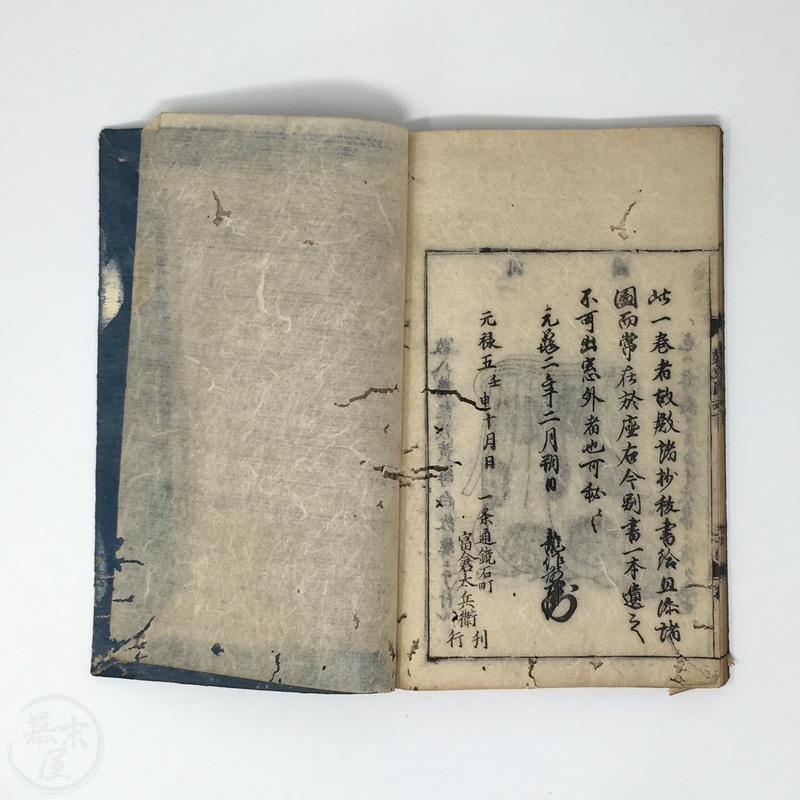 此一巻者故数諸抄秘書給且添諸
圖而常在於座右今別書一本遺之
不可出窓外者也可秘々
元龜二年十二月朔日
元禄五壬申十月日
一条通鏡石町
冨倉太兵衛
刊行
幕末屋